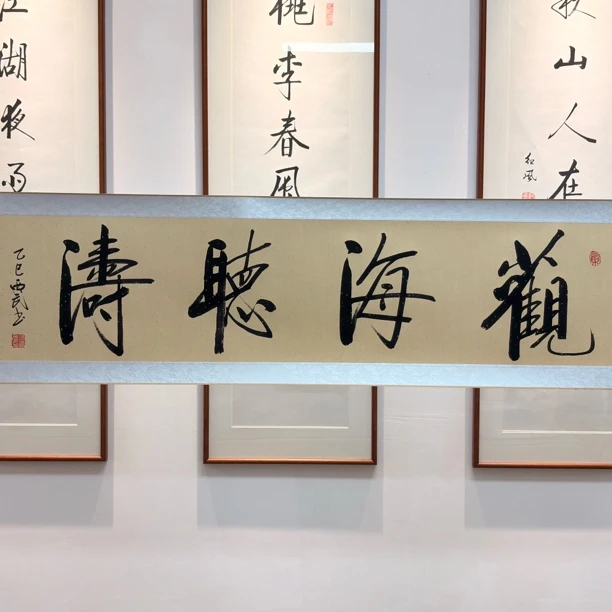 觀海聽濤
乙巳西武書
山人在
紅風
桃李春風
江湖夜雨